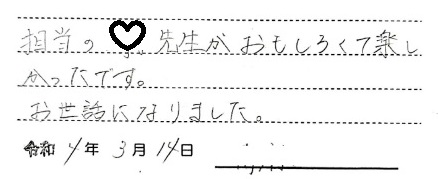 担当の 先生がおもしろくて楽し
かったです。
お世話になりました。
令和4年3月14日